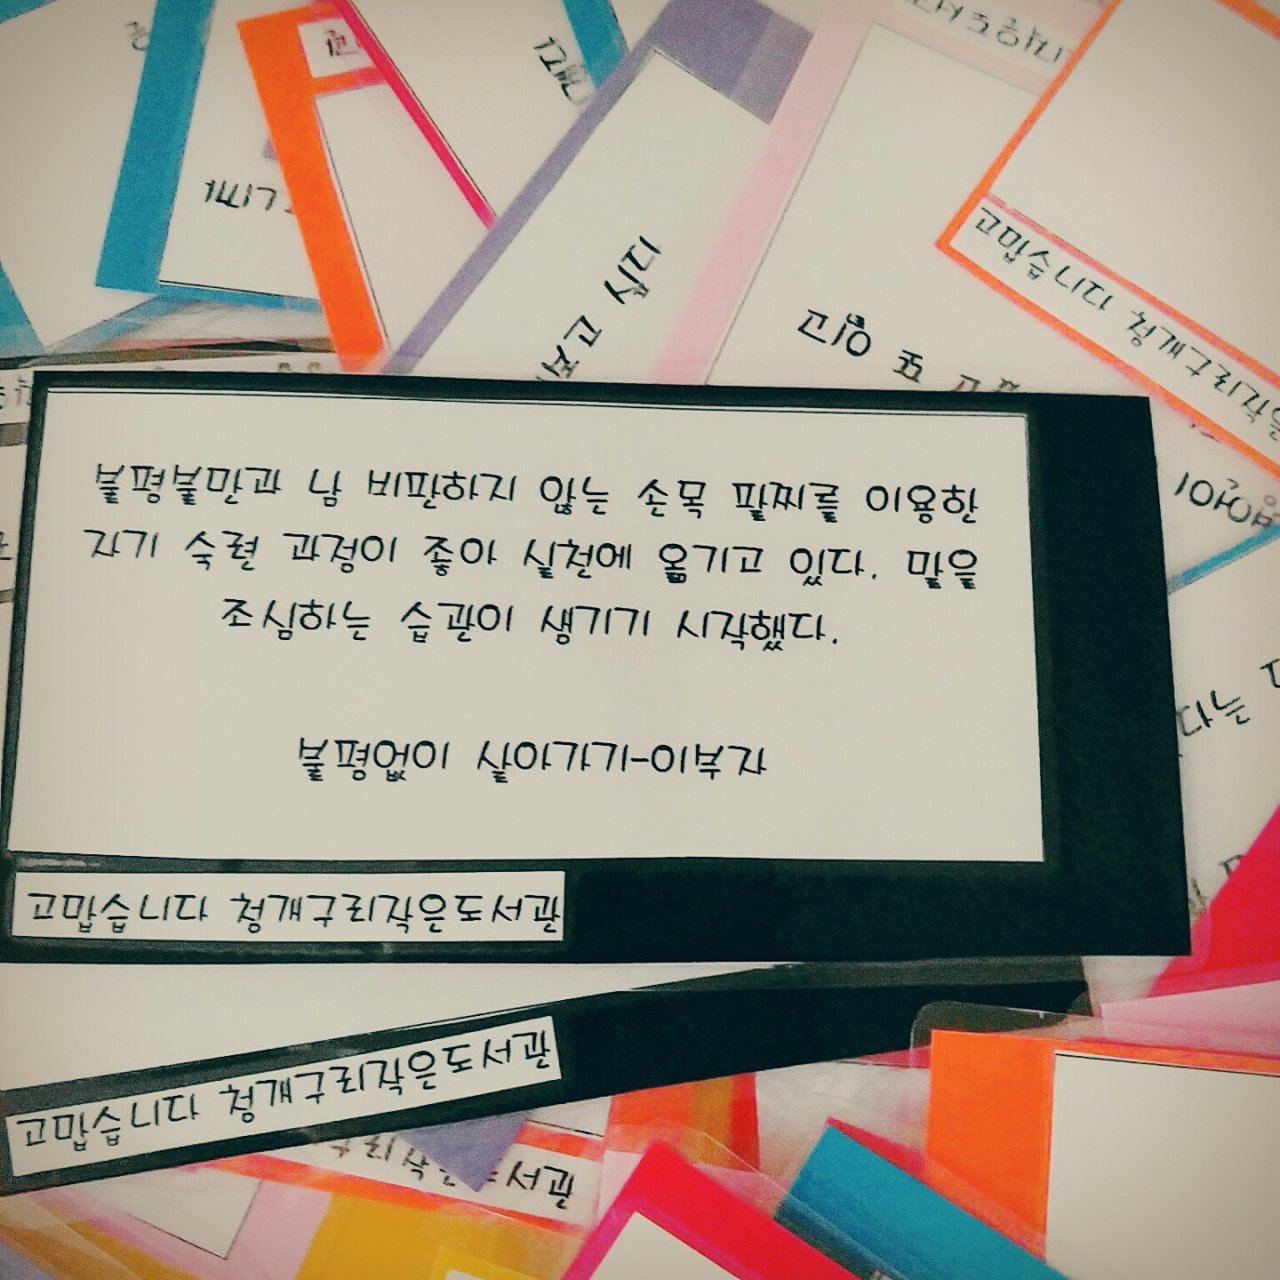 불평불만과 남 비판하지 않는 손목 팔찌를 이용한
자기 숙련 과정이 좋아 실천에 옮기고 있다. 말을
조심하는 습관이 생기기 시작했다.
불평없이 살아가기-이부자
고맙습니다 청개구리작은도서관
고맙습니다 청개구리작은도서관
고맙습니다 청개구리작은